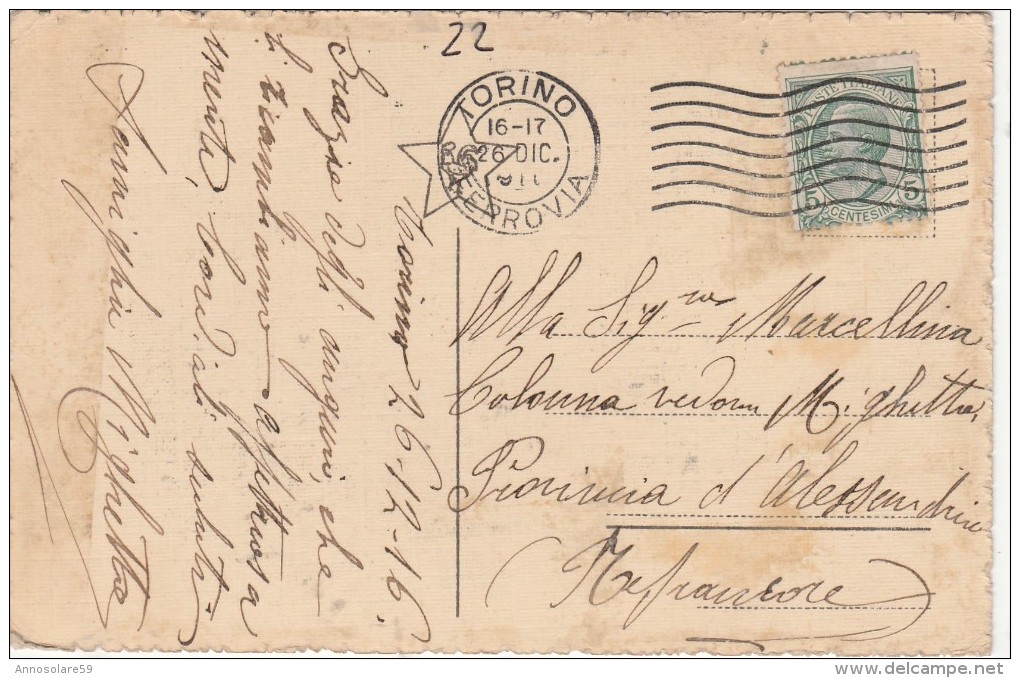 22
TORINO
16-17
26 DIC.
911
FERROVIA
POSTE ITALIANE
5 5
CENTESIMI
Torino 26-12-16.
Grazie degli auguri, che
ti ricambiamo affettuosa
mente, Cordiali saluti
Famiglia Mighetto
Alla Sig.ra Marcellina
Colonna vedova Mighetto,
Provincia d'Alessandria
(Refrancore)
Annosolare59
delcampe.net